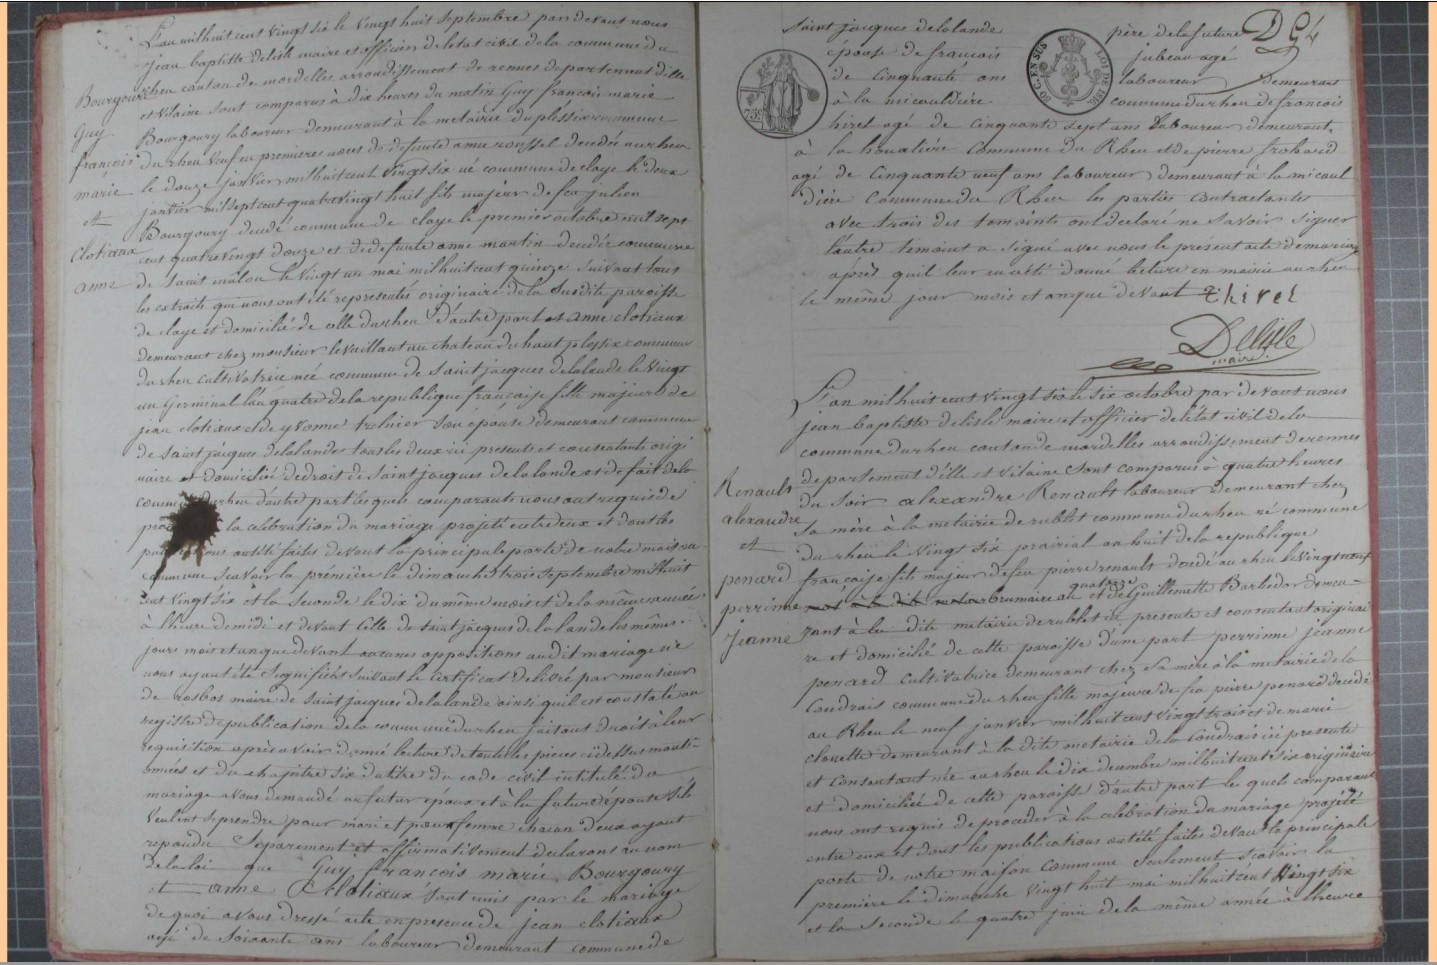 L'an mil huit cent vingt six le vingt huit septembre par devant nous
jean baptiste delisle maire et officier de l'etat civil de la commune du
rheu canton de mordelles arrondissement de rennes departement d'ille
et vilaine sont comparus à dix heures du matin Guy francois marie
Bourgoury laboureur demeurant à la metairie du plessix commune
du rheu veuf en premieres noces de defunte anne roussel decedée au rheu
le douze janvier mil huit cent vingt six né commune de claye le deux
janvier mil sept cent quatre vingt huit fils majeur de feu julien
Bourgoury decedé commune de claye le premier octobre mil sept
cent quatre vingt douze et de defunte anne martin decedée commune
de saint malon le vingt un mai mil huit cent quinze suivant tous
les extraits qui nous ont été representés originaire de la susdite paroisse
de claye et domicilié de celle du rheu d'autre part et anne clotiaux
demeurant chez monsieur levaillant au chateau du haut plessix commune
du rheu cultivatrice née commune de saint jacques de lalande le vingt
un Germinal l'an quatre de la republique française fille majeure de
jean clotiaux et de yvonne trehuier son epouse demeurant commune
de saint jacques delalande tous les deux ici presents et consentants origi
naire et domicilié de droit de saint jacques de la lande et de fait de la
commune du rheu d'autre part lesquels comparants nous ont requis de
la celebration du mariage projeté entre eux et dont les
ont été faites devant la principale porte de notre maison
commune scavoir la première le dimanche trois septembre mil huit
cent vingt six et la seconde le dix du même mois et de la même année
à l'heure de midi et devant celle de saint jacques de la lande les mêmes
jours mois et an que devant aucunes oppositions audit mariage ne
nous ayant été signifiés suivant le certificat delivré par monsieur
de rosbos maire de saint jacques delalande ainsi qu'il est constaté au
registre de publication de la commune du rheu faisant droit à leur
requisition après avoir donné lecture de toutes les pieces ci dessus menti-
onnées et du chapitre six du titre du code civil intitulé du
mariage avons demandé au futur epoux et à la future épouse s'ils
veulent se prendre pour mari et pour femme chacun d'eux ayant
repondu Separement et affirmativement declarons au nom
de la loi que Guy francois marie Bourgoury
et anne Clotiaux sont unis par le mariage
de quoi avons dressé acte en presence de jean clotiaux
agé de soixante ans laboureur demeurant commune de
Bourgoury
Guy
françois
marie
et
clotiaux
anne
saint jacques de lalande père de la future
epouse de francois jubeau agé
de cinquante ans laboureur demeurant
à la micauldière commune du rheu de francois
hirel agé de cinquante sept ans laboureur demeurant
à la houatière Commune du Rheu et de pierre frohard
agé de Cinquante neuf ans laboureur demeurant à la micaul
dière Commune du Rheu les parties Contractantes
avec trois des temoints ont declaré ne savoir signer
l'autre témoint a signé avec nous le présent acte de mariage
après quil leur en a été donné lecture en mairie au rheu
le même jour mois et an que devant Thirel
Delisle
maire
D 54
75c
L'an mil huit cent vingt six le six octobre par devant nous
jean baptiste delisle maire et officier de l'état civil de la
commune du rheu canton de mordelles arrondissement de rennes
departement d'ille et vilaine sont comparus à quatre heures
du soir alexandre Renault laboureur demeurant chez
sa mère à la metairie de rublet commune du rheu né commune
du rheu le vingt six prairial an huit de la republique
française fils majeur de feu pierre renault decedé au rheu le vingt neuf
brumaire an quatorze et de Guillemette Barbedor demeu-
rant à la dite metairie de rublet ici presente et consentant originai
re et domicilié de cette paroisse d'une part perrinne jeanne
penard cultivatrice demeurant chez sa mère à la metairie de la
Coudrais commune du rheu fille majeure de feu pierre penard decedé
au Rheu le neuf janvier mil huit cent vingt trois et de marie
clouette demeurant à la dite metairie de la Coudrais ici presente
et Consentant née au rheu le dix decembre mil huit cent six originaire
et domiciliée de cette paroisse d'autre part lesquels comparants
nous ont requis de proceder à la celebration du mariage projeté
entre eux et dont les publications ont été faites devant la principale
porte de notre maison commune Seulement scavoir la
première le dimanche vingt huit mai mil huit cent vingt six
et la seconde le quatre juin de la même année à l'heure
Renault
alexandre
et
penard
perrinne
jeanne